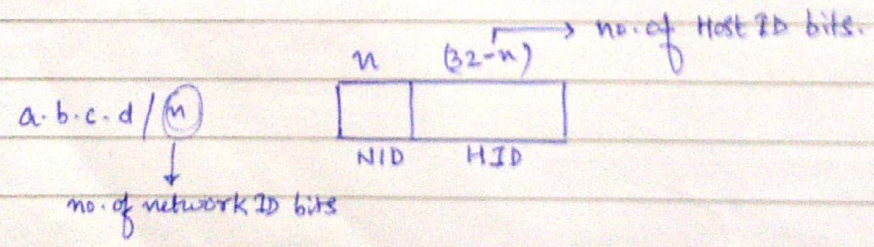 n (32-n) → no. of Host ID bits.
a.b.c.d/n
NID HID
no. of network ID bits